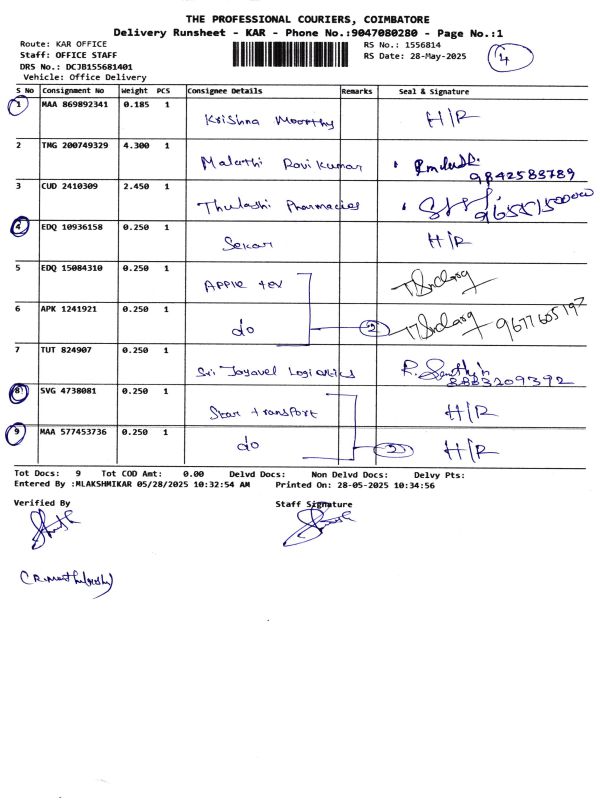 THE PROFESSIONAL COURIERS, COIMBATORE
Delivery Runsheet - KAR - Phone No.:9047080280 - Page No.:1
Route: KAR OFFICE RS No.: 1556814
Staff: OFFICE STAFF RS Date: 28-May-2025 4
DRS No.: DCJB155681401
Vehicle: Office Delivery
S No Consignment No Weight PCS Consignee Details Remarks Seal & Signature
1 MAA 869892341 0.185 1 Krishna Moorthy H/R
2 TMG 200749329 4.300 1 Malathi Ravi Kumar 9842583789
3 CUD 2410309 2.450 1 Thulashi Pharmacies
4 EDQ 10936158 0.250 1 Sekar H/R
5 EDQ 15084310 0.250 1
6 APK 1241921 0.250 1 do 2 9677605197
7 TUT 824907 0.250 1 Sri Jayavel Logistics 8883209392
8 SVG 4738081 0.250 1 Star transport H/R
9 MAA 577453736 0.250 1 do 2 H/R
Tot Docs: 9 Tot COD Amt: 0.00 Delvd Docs: Non Delvd Docs: Delvy Pts:
Entered By :MLAKSHMIKAR 05/28/2025 10:32:54 AM Printed On: 28-05-2025 10:34:56
Verified By Staff Signature